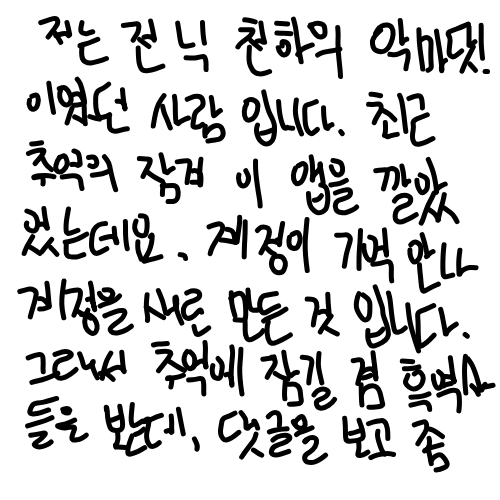 저는 전 닉 천하의 악마댓!
이였던 사람 입니다. 최근
추억의 잠겨 이 앱을 깔았
었는데요, 계정이 기억 안나
계정을 새로 만든 것 입니다.
그래서 추억에 잠길 겸 흑역사
들을 봤는데, 댓글을 보고 좀